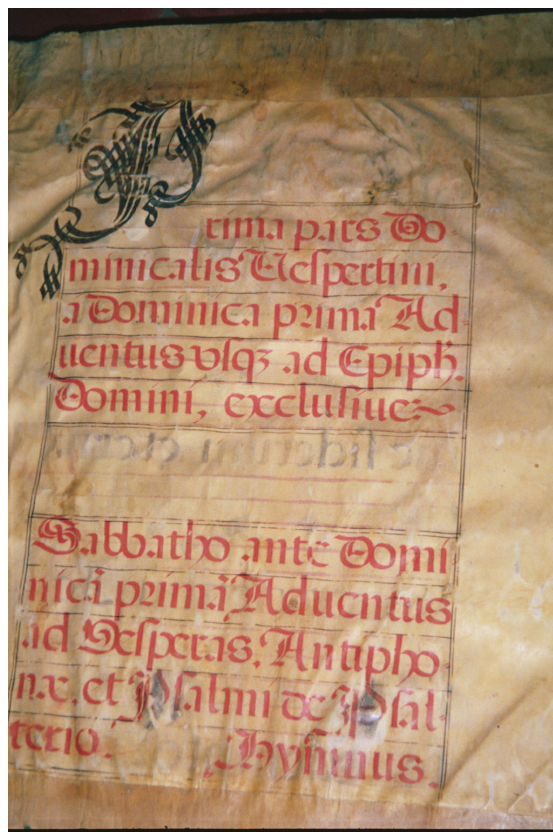 Prima pars Do
minicalis Vespertini,
a Dominica prima Ad-
uentus vsqꝫ ad Epiph.
Domini, exclusiue~
Sabbatho ante Domi
nicā primā Aduentus
ad Vesperas. Antipho-
næ, et Psalmi de Psal-
terio. Hymnus.